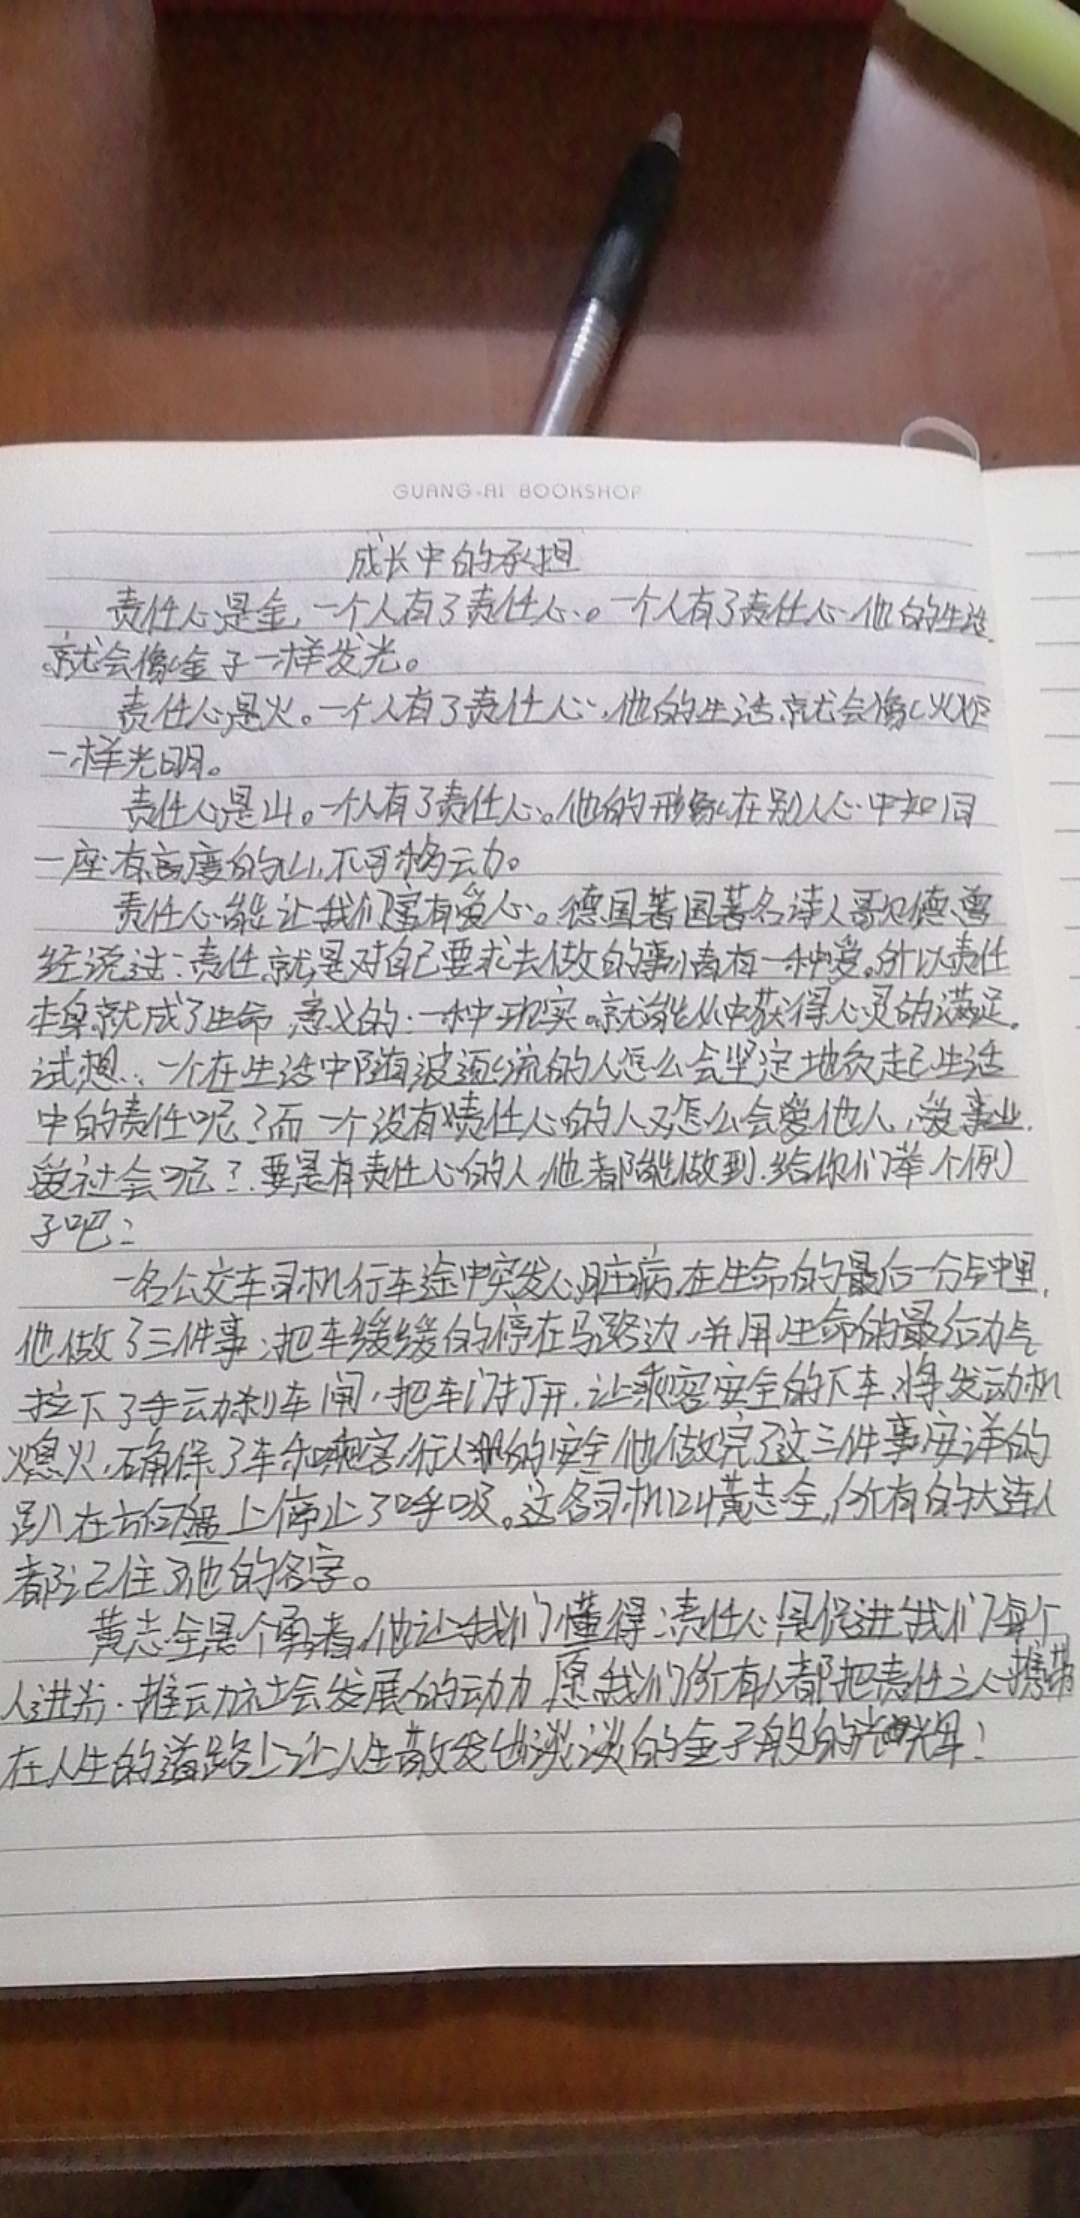 GUANG.AI BOOKSHOP
成长中的承担
责任心是金，一个人有了责任心。一个人有了责任心他的生活
就会像金子一样发光。
责任心是火。一个人有了责任心，他的生活就会像火炬
一样光明。
责任心是山。一个人有了责任心。他的形象在别人心中如同
一座有高度的山，不可移动。
责任心能让我们富有爱心。德国著国著名诗人歌德曾
经说过：责任就是对自己要求去做的事情有一种爱。所以责任
本身就成了生命意义的一种现实。就能从中获得心灵的满足。
试想，一个在生活中随波逐流的人怎么会坚定地负起生活
中的责任呢？而一个没有责任心的人又怎么会爱他人，爱事业，
爱社会呢？要是有责任心的人，他都能做到，给你们举个例
子吧：
一名公交车司机行车途中突发心脏病，在生命的最后一分钟里，
他做了三件事：把车缓缓的停在马路边，并用生命的最后力气
拉下了手动刹车闸，把车门打开，让乘客安全的下车，将发动机
熄火，确保了车和乘客，行人的安全，他做完了这三件事安详的
趴在方向盘上停止了呼吸。这名司机叫黄志全，所有的大连人
都记住了他的名字。
黄志全是个勇者，他让我们懂得：责任心是促进我们每个
人进步，推动社会发展的动力，愿我们所有人都把责任之人携带
在人生的道路上让人生散发出淡淡的金子般的光辉！